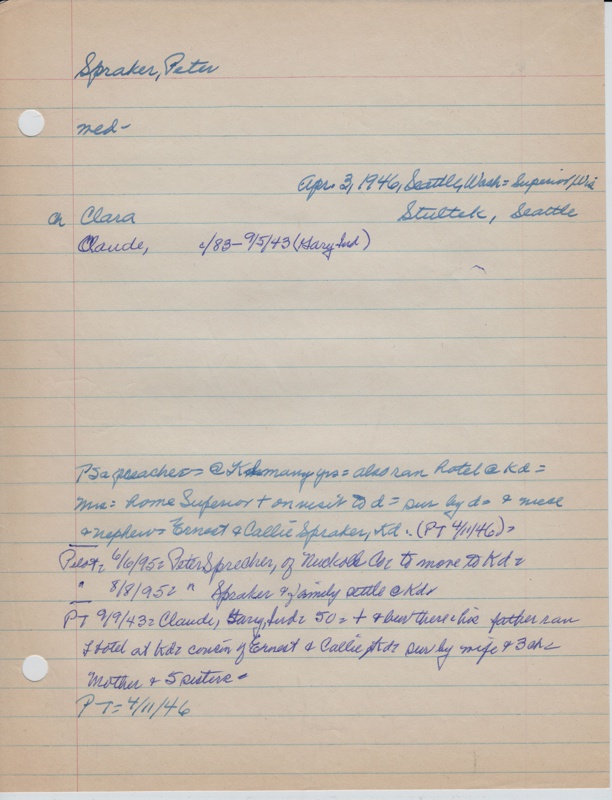 Spraker, Peter
med-
Apr. 3, 1946, Seattle, Wash = Superior, Wis
ch Clara Stultek, Seattle
Claude, c/83-9/5/43 (Gary Ind)
P = a preacher = @ Kd many yrs = also ran hotel @ Kd =
Mrs = home Superior + on visit to d = sur by d = & niece
& nephew = Ernest & Callie Spraker, Kd. (PT 4/11/46) =
Pilot = 6/6/95 = Peter Sprecher, of Nuckolls Co = to move to Kd =
" 8/8/95 = " Spraker & family settle @ Kd =
PT 9/9/43 = Claude, Gary, Ind = 50 = + & bur there = his father ran
Hotel at Kd = cousin of Ernest & Callie, Kd = sur by wife & 3 ch =
Mother & 5 sisters =
PT = 4/11/46